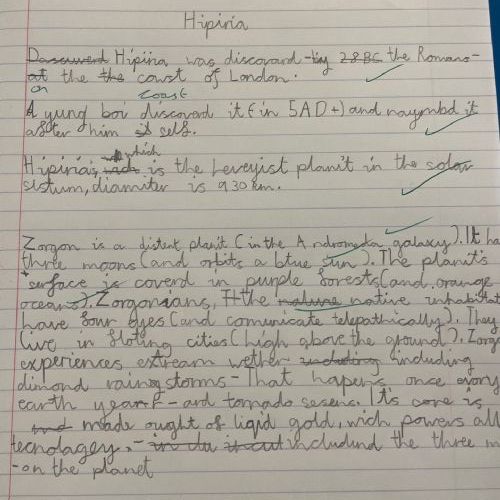 Hipiria
Dascuverd Hipiria was discovard by 28BC the Romans
at the the coust of London.
on coast
A yung boi discoverd it (in 5AD+) and naymbd it
after him it self.
which
Hipiria, is the Leveyist planit in the solar
sistum, diamiter is 930km.
Zorgon is a distent planit (in the Andromeda galaxy). It ha
three moons (and orbits a blue sun). The planits
surface is coverd in purple forests (and orange
oceans). Zorgonians, the nature native inhabitat
have four eyes (and comunicate telepathically). They
live in floting cities (high above the ground). Zorg
experiences extream wether including including
dimond raing storms - That hapens once evory
earth year - and tornado sesens. It's core is
made ought of liqid gold, wich powers all
tecnolagey, - includind the three m
-on the planet